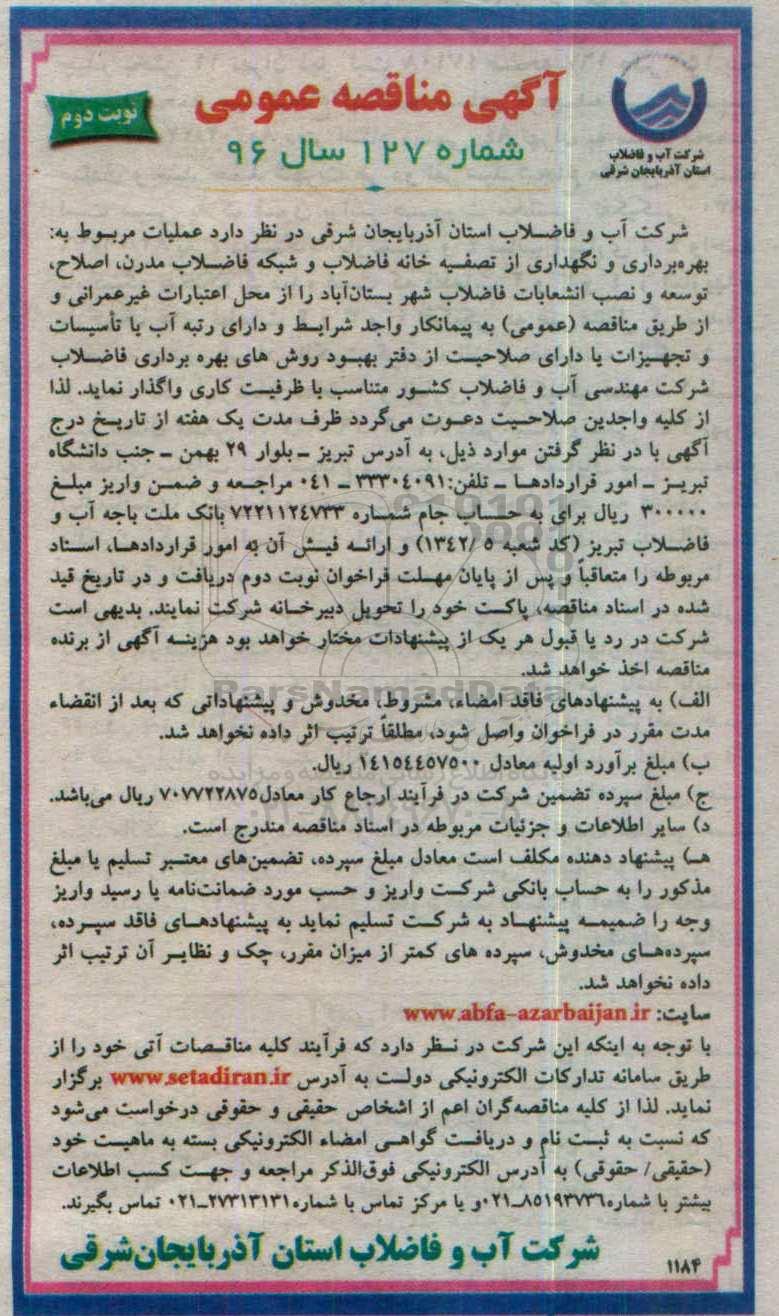 آگهی مناقصه عمومی
شماره ۱۲۷ سال ۹۶
نوبت دوم
شرکت آب و فاضلاب
استان آذربایجان شرقی
شرکت آب و فاضلاب استان آذربایجان شرقی در نظر دارد عملیات مربوط به:
بهره‌برداری و نگهداری از تصفیه خانه فاضلاب و شبکه فاضلاب مدرن، اصلاح،
توسعه و نصب انشعابات فاضلاب شهر بستان‌آباد را از محل اعتبارات غیرعمرانی و
از طریق مناقصه (عمومی) به پیمانکار واجد شرایط و دارای رتبه آب یا تأسیسات
و تجهیزات یا دارای صلاحیت از دفتر بهبود روش های بهره برداری فاضلاب
شرکت مهندسی آب و فاضلاب کشور متناسب با ظرفیت کاری واگذار نماید. لذا
از کلیه واجدین صلاحیت دعوت می‌گردد ظرف مدت یک هفته از تاریخ درج
آگهی با در نظر گرفتن موارد ذیل، به آدرس تبریز ـ بلوار ۲۹ بهمن ـ جنب دانشگاه
تبریز ـ امور قراردادها ـ تلفن: ۳۳۳۰۴۰۹۱ ـ ۰۴۱ مراجعه و ضمن واریز مبلغ
۳۰۰۰۰۰ ریال برای به حساب جام شماره ۷۲۲۱۱۲۴۷۳۳ بانک ملت باجه آب و
فاضلاب تبریز (کد شعبه ۵ /۱۳۴۲) و ارائه فیش آن به امور قراردادها، اسناد
مربوطه را متعاقباً و پس از پایان مهلت فراخوان نوبت دوم دریافت و در تاریخ قید
شده در اسناد مناقصه، پاکت خود را تحویل دبیرخانه شرکت نمایند. بدیهی است
شرکت در رد یا قبول هر یک از پیشنهادات مختار خواهد بود هزینه آگهی از برنده
مناقصه اخذ خواهد شد.
الف) به پیشنهادهای فاقد امضاء، مشروط، مخدوش و پیشنهاداتی که بعد از انقضاء
مدت مقرر در فراخوان واصل شود، مطلقاً ترتیب اثر داده نخواهد شد.
ب) مبلغ برآورد اولیه معادل ۱۴۱۵۴۴۵۷۵۰۰ ریال.
ج) مبلغ سپرده تضمین شرکت در فرآیند ارجاع کار معادل ۷۰۷۷۲۲۸۷۵ ریال می‌باشد.
د) سایر اطلاعات و جزئیات مربوطه در اسناد مناقصه مندرج است.
هـ) پیشنهاد دهنده مکلف است معادل مبلغ سپرده، تضمین‌های معتبر تسلیم یا مبلغ
مذکور را به حساب بانکی شرکت واریز و حسب مورد ضمانت‌نامه یا رسید واریز
وجه را ضمیمه پیشنهاد به شرکت تسلیم نماید به پیشنهادهای فاقد سپرده،
سپرده‌های مخدوش، سپرده های کمتر از میزان مقرر، چک و نظایر آن ترتیب اثر
داده نخواهد شد.
سایت: www.abfa-azarbaijan.ir
با توجه به اینکه این شرکت در نظر دارد که فرآیند کلیه مناقصات آتی خود را از
طریق سامانه تدارکات الکترونیکی دولت به آدرس www.setadiran.ir برگزار
نماید. لذا از کلیه مناقصه‌گران اعم از اشخاص حقیقی و حقوقی درخواست می‌شود
که نسبت به ثبت نام و دریافت گواهی امضاء الکترونیکی بسته به ماهیت خود
(حقیقی/ حقوقی) به آدرس الکترونیکی فوق‌الذکر مراجعه و جهت کسب اطلاعات
بیشتر با شماره ۸۵۱۹۳۷۳۶ـ۰۲۱ و یا مرکز تماس با شماره ۲۷۳۱۳۱۳۱ـ۰۲۱ تماس بگیرند.
شرکت آب و فاضلاب استان آذربایجان‌شرقی
۱۱۸۴
ParsNamadData